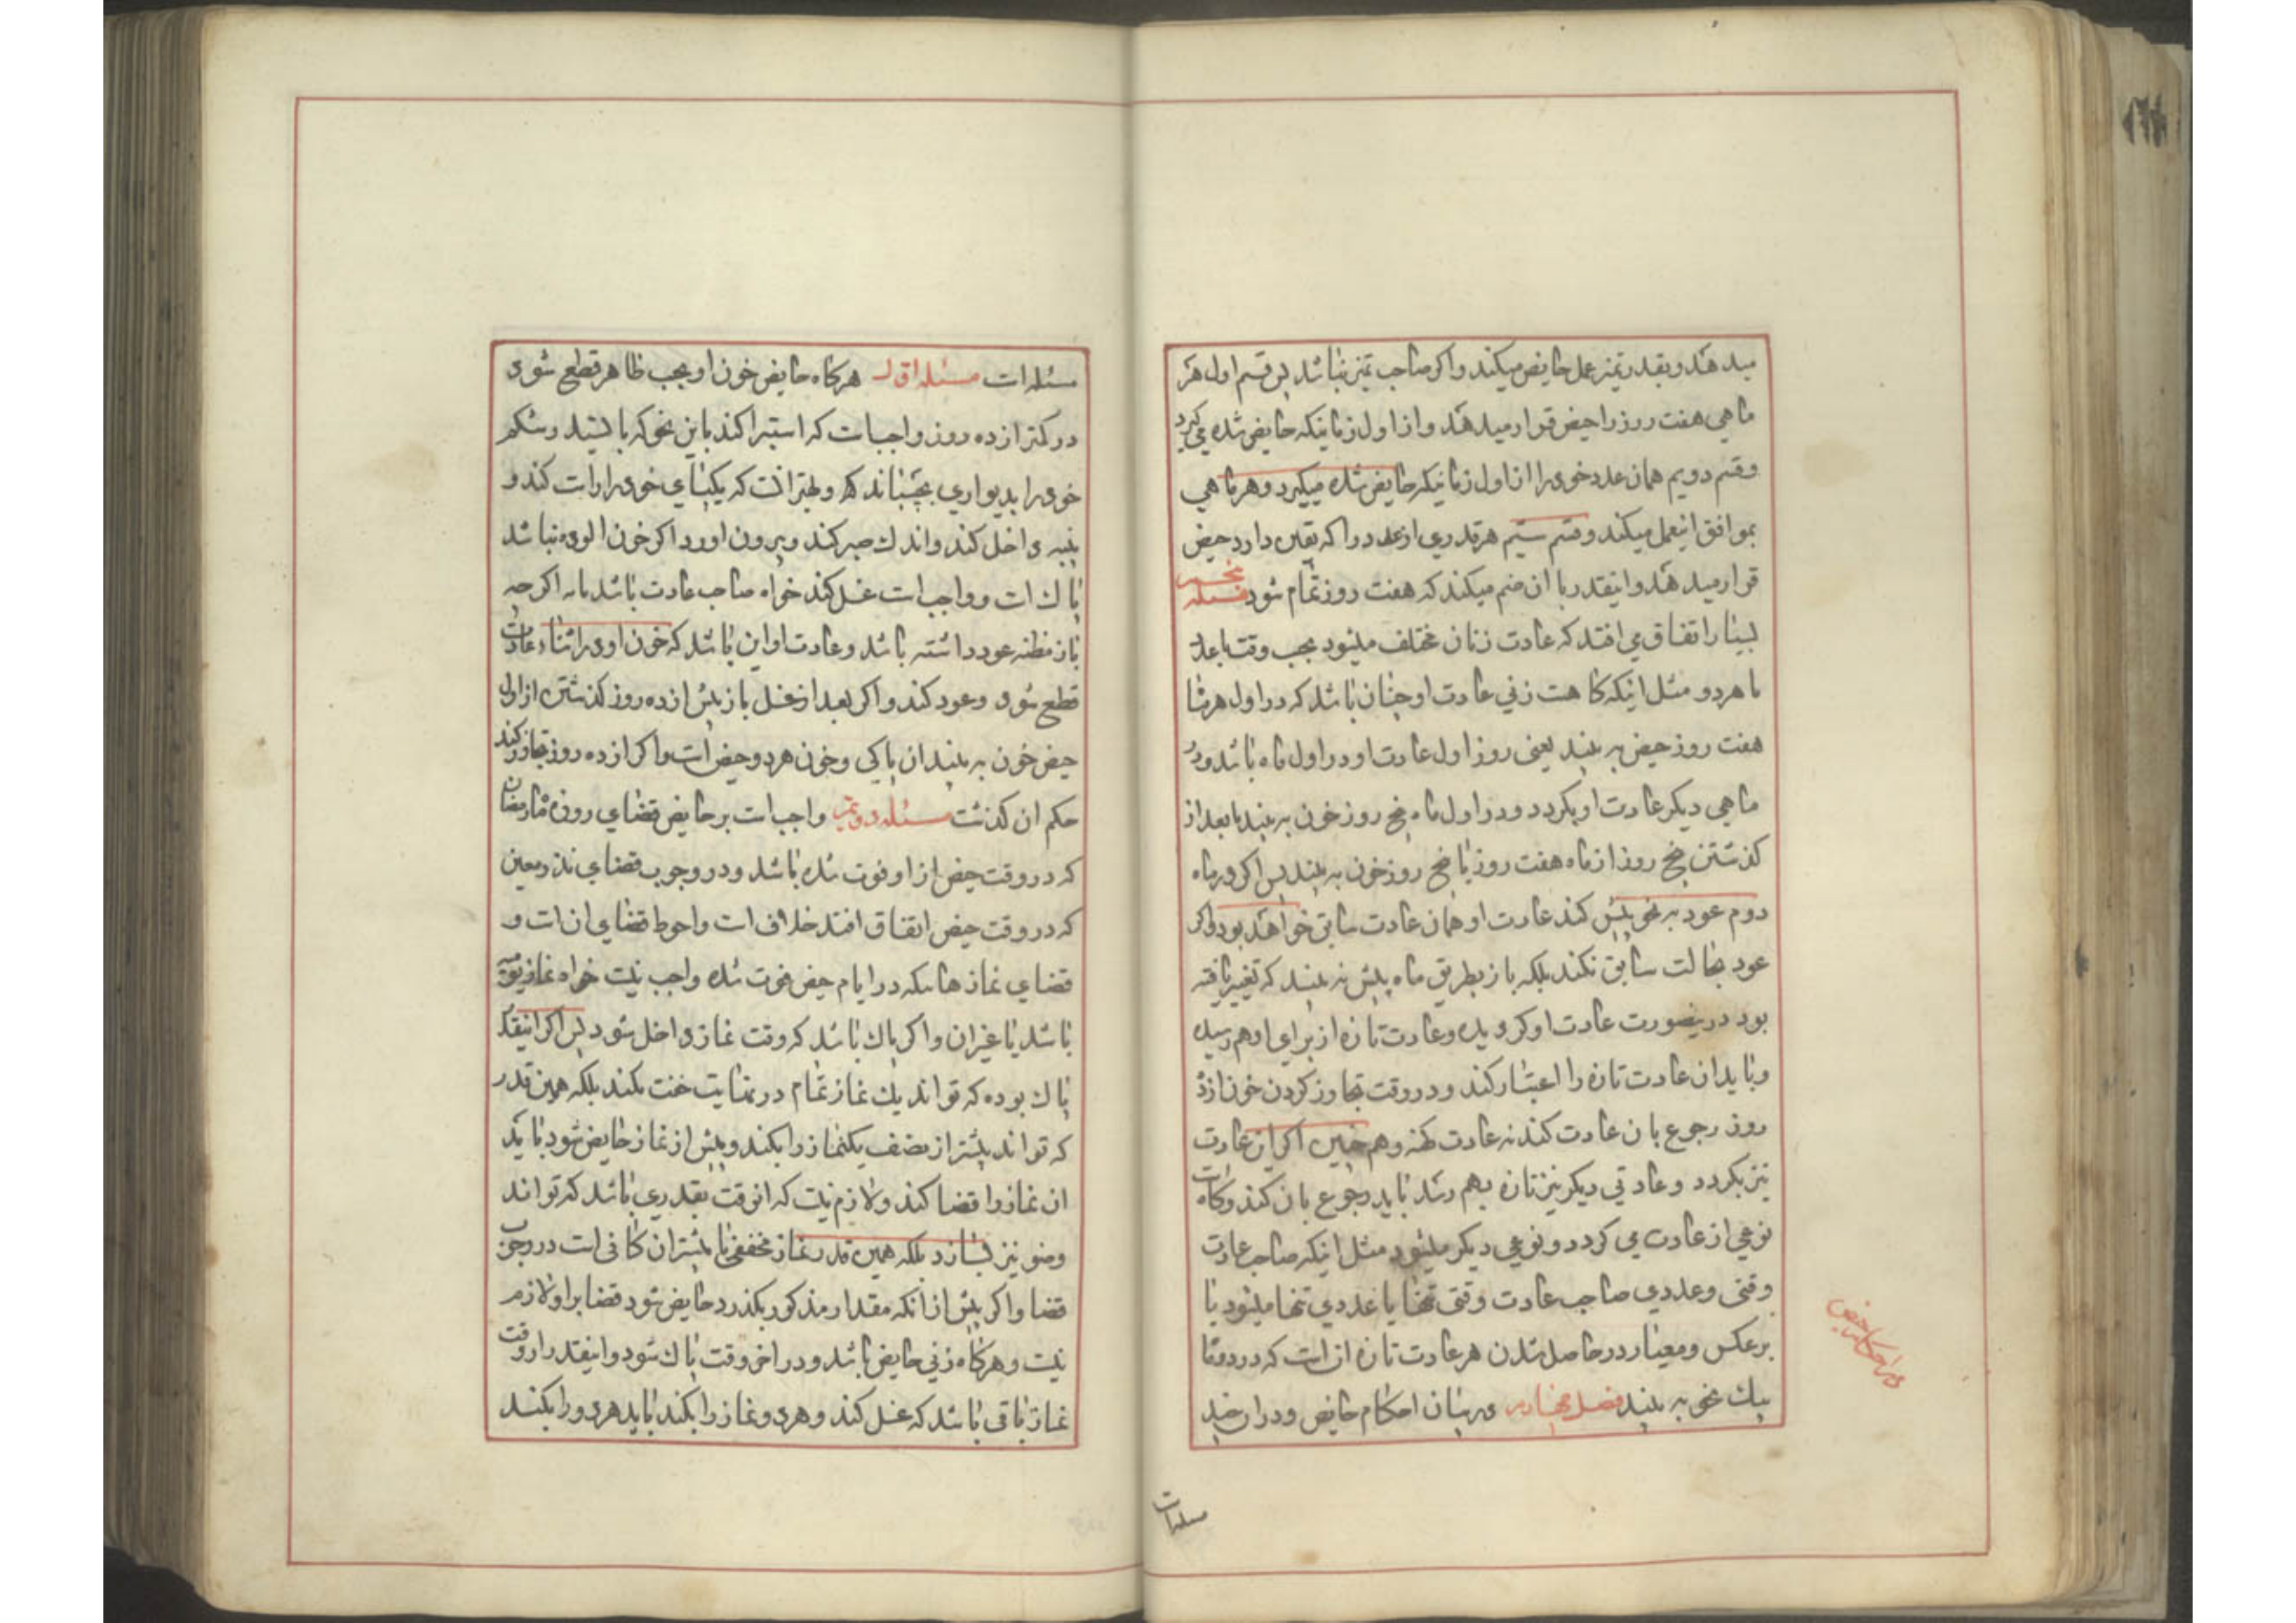 میدهد و بقدر تمیز عمل حایض میکند و اکر صاحب تمیز نباشد پس قسم اول هر
ماهی هفت روز را حیض قرار میدهد و از اول زمانیکه حایض شده می کیرد
و قسم دویم همان عدد خود را از اول زمانیکه حایض شده میکیرد و هر ماهی
بموافق ان عمل میکند و قسم سیم هر قدری از عدد را که یقین دارد حیض
قرار میدهد و اینقدر با ان ضم میکند که هفت روز تمام شود مسئله پنجم
بسیار اتفاق می افتد که عادت زنان مختلف میشود بحسب وقت یا عدد
یا هر دو مثل اینکه کاهست زنی عادت او چنان باشد که در اول هر ماه
هفت روز حیض به بیند یعنی روز اول عادت او در اول ماه باشد و در
ماهی دیکر عادت او بکردد و در اول ماه پنج روز خون به بیند یا بعد از
کذشتن پنج روز از ماه هفت روز یا پنج روز خون به بیند پس اکر در ماه
دوم عود به نحو پیش کند عادت او همان عادت سابق خواهد بود و اکر
عود بحالت سابق نکند بلکه باز بطریق ماه پیش به بیند که تغییر یافته
بود در ینصورت عادت او کردیده و عادت تازه از برای او بهم رسیده
و باید ان عادت تازه را اعتبار کند و در وقت تجاوز کردن خون از ده
روز رجوع بان عادت کند نه عادت کهنه و هم چنین اکر این عادت
نیز بکردد و عادتی دیکر نیز تازه بهم رسد باید رجوع بان کند و کاه است
نوعی از عادت می کردد و نوعی دیکر میشود مثل اینکه صاحب عادت
وقتی و عددی صاحب عادت وقتی تنها یا عددی تنها میشود یا
بر عکس و معیار در حاصل شدن هر عادت تازه ان است که در دو ماه
بیک نحو به بیند فصل چهارم در بیان احکام حایض و در ان چند
در احکام حیض
مسئله است
مسئله است مسئله اول هر کاه حایض خون او بحسب ظاهر قطع شود
در کمتر از ده روز واجب است که استبرا کند باین نحو که بایستد و شکم
خود را بدیواری بچسباند و بهتر انست که یکپای خود را راست کند و
پنبه داخل کند و اندک صبر کند و بیرون اورد اکر خون الود نباشد
پاک است و واجب است غسل کند خواه صاحب عادت باشد یا نه اکر چه
باز مظنه عود داشته باشد و عادت او این باشد که خون او در اثناء عادت
قطع شود و عود کند و اکر بعد از غسل باز پیش از ده روز کذشتن از اول
حیض خون به بیند ان پاکی و خون هر دو حیض است و اکر از ده روز تجاوز کند
حکم ان کذشت مسئله دویم واجب است بر حایض قضای روزه ماه رمضان
که در وقت حیض از او فوت شده باشد و در وجوب قضای نذر معین
که در وقت حیض اتفاق افتد خلاف است و احوط قضای ان است و
قضای نماز هائیکه در ایام حیض فوت شده واجب نیست خواه نماز یومیه
باشد یا غیر ان و اکر پاک باشد که وقت نماز داخل شود پس اکر اینقدر
پاک بوده که تواند یک نماز تمام در نهایت خفت بکند بلکه همین قدر
که تواند بیشتر از نصف یکنماز را بکند و پیش از نماز حایض شود باید
ان نماز را قضا کند و لازم نیست که انوقت بقدری باشد که تواند
وضو نیز بسازد بلکه همین قدر نماز مخففی یا بیشتر ان کافی است در وجوب
قضا و اکر پیش از انکه مقدار مذکور بکذرد حایض شود قضا بر او لازم
نیست و هر کاه زنی حایض باشد و در اخر وقت پاک شود و اینقدر از وقت
نماز باقی باشد که غسل کند و هر دو نماز را بکند باید هر دو را بکند